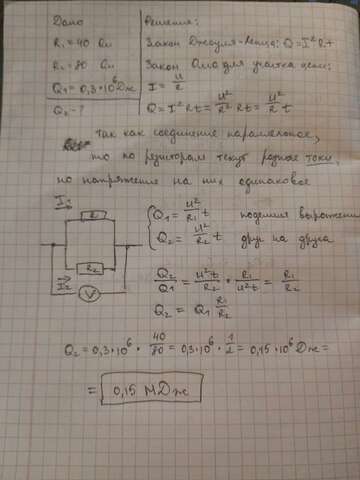 Дано
R₁=40 Ом
R₂=80 Ом
Q₁=0,3·10⁶Дж
Q₂-?
Решение:
Закон Джоуля-Ленца: Q=I²Rt
Закон Ома для участка цепи:
I=U/R
Q=I²Rt=U²/R² Rt=U²/R t
Так как соединение параллельное,
то по резисторам текут разные токи,
но напряжение на них одинаковое
I₁
R₁
I₂
R₂
V
Q₁=U²/R₁ t
Q₂=U²/R₂ t
поделим выражения
друг на друга
Q₂/Q₁=U²t/R₂ · R₁/U²t=R₁/R₂
Q₂=Q₁ R₁/R₂
Q₂=0,3·10⁶ · 40/80=0,3·10⁶·1/2=0,15·10⁶Дж=
= 0,15 МДж